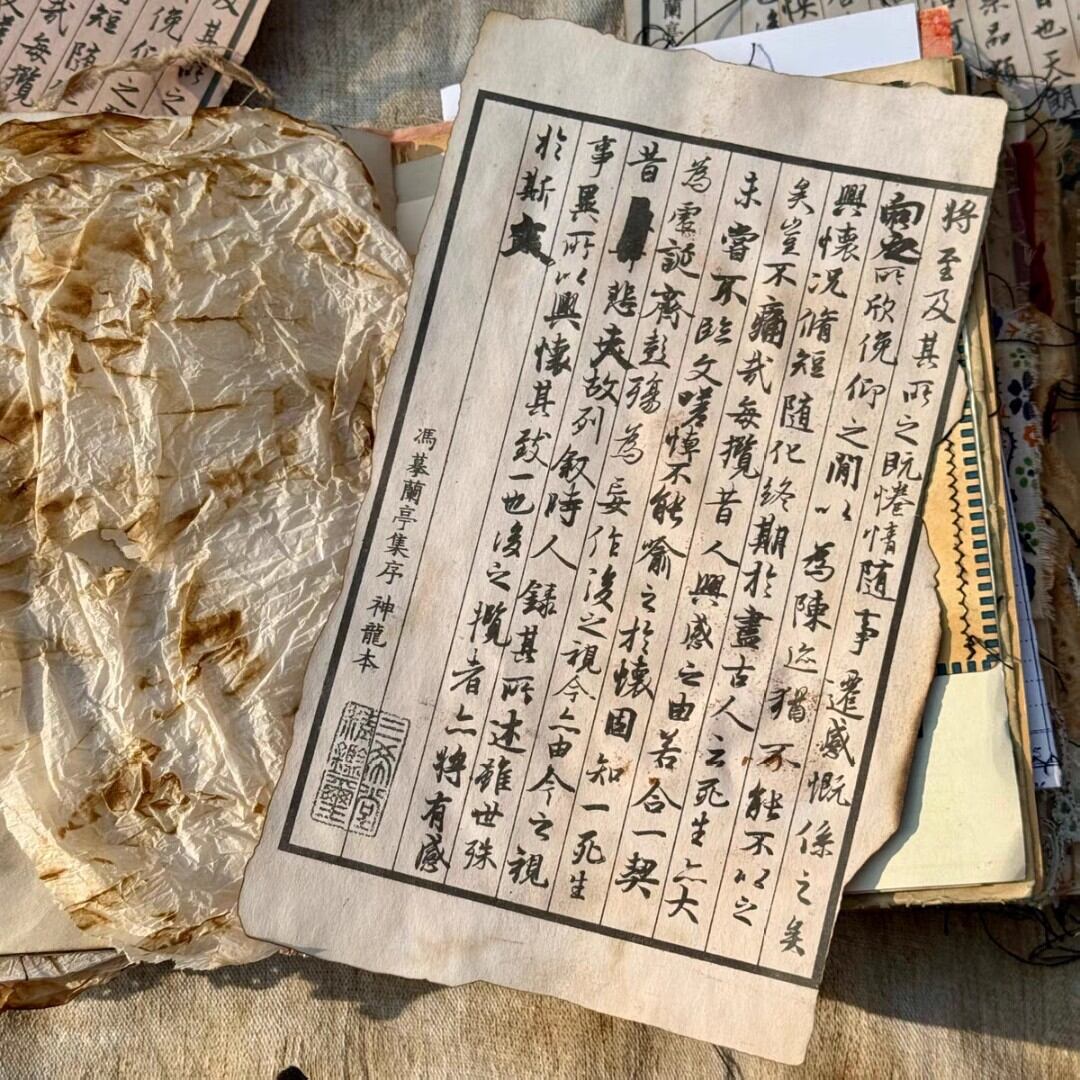 將至及其所之既惓情隨事遷感慨係之矣
向之所欣俛仰之閒以為陳迹猶不能不以之
興懷况脩短隨化終期於盡古人云死生亦大
矣豈不痛哉每攬昔人興感之由若合一契
未嘗不臨文嗟悼不能喻之於懷固知一死生
為虛誕齊彭殤為妄作後之視今亦由今之視
昔悲夫故列叙時人錄其所述雖世殊
事異所以興懷其致一也後之攬者亦將有感
於斯文
馮摹蘭亭集序 神龍本
三希堂
精鑑璽
及其所
俛仰之
短隨
哉每攬
也天朗
品類
蘭亭